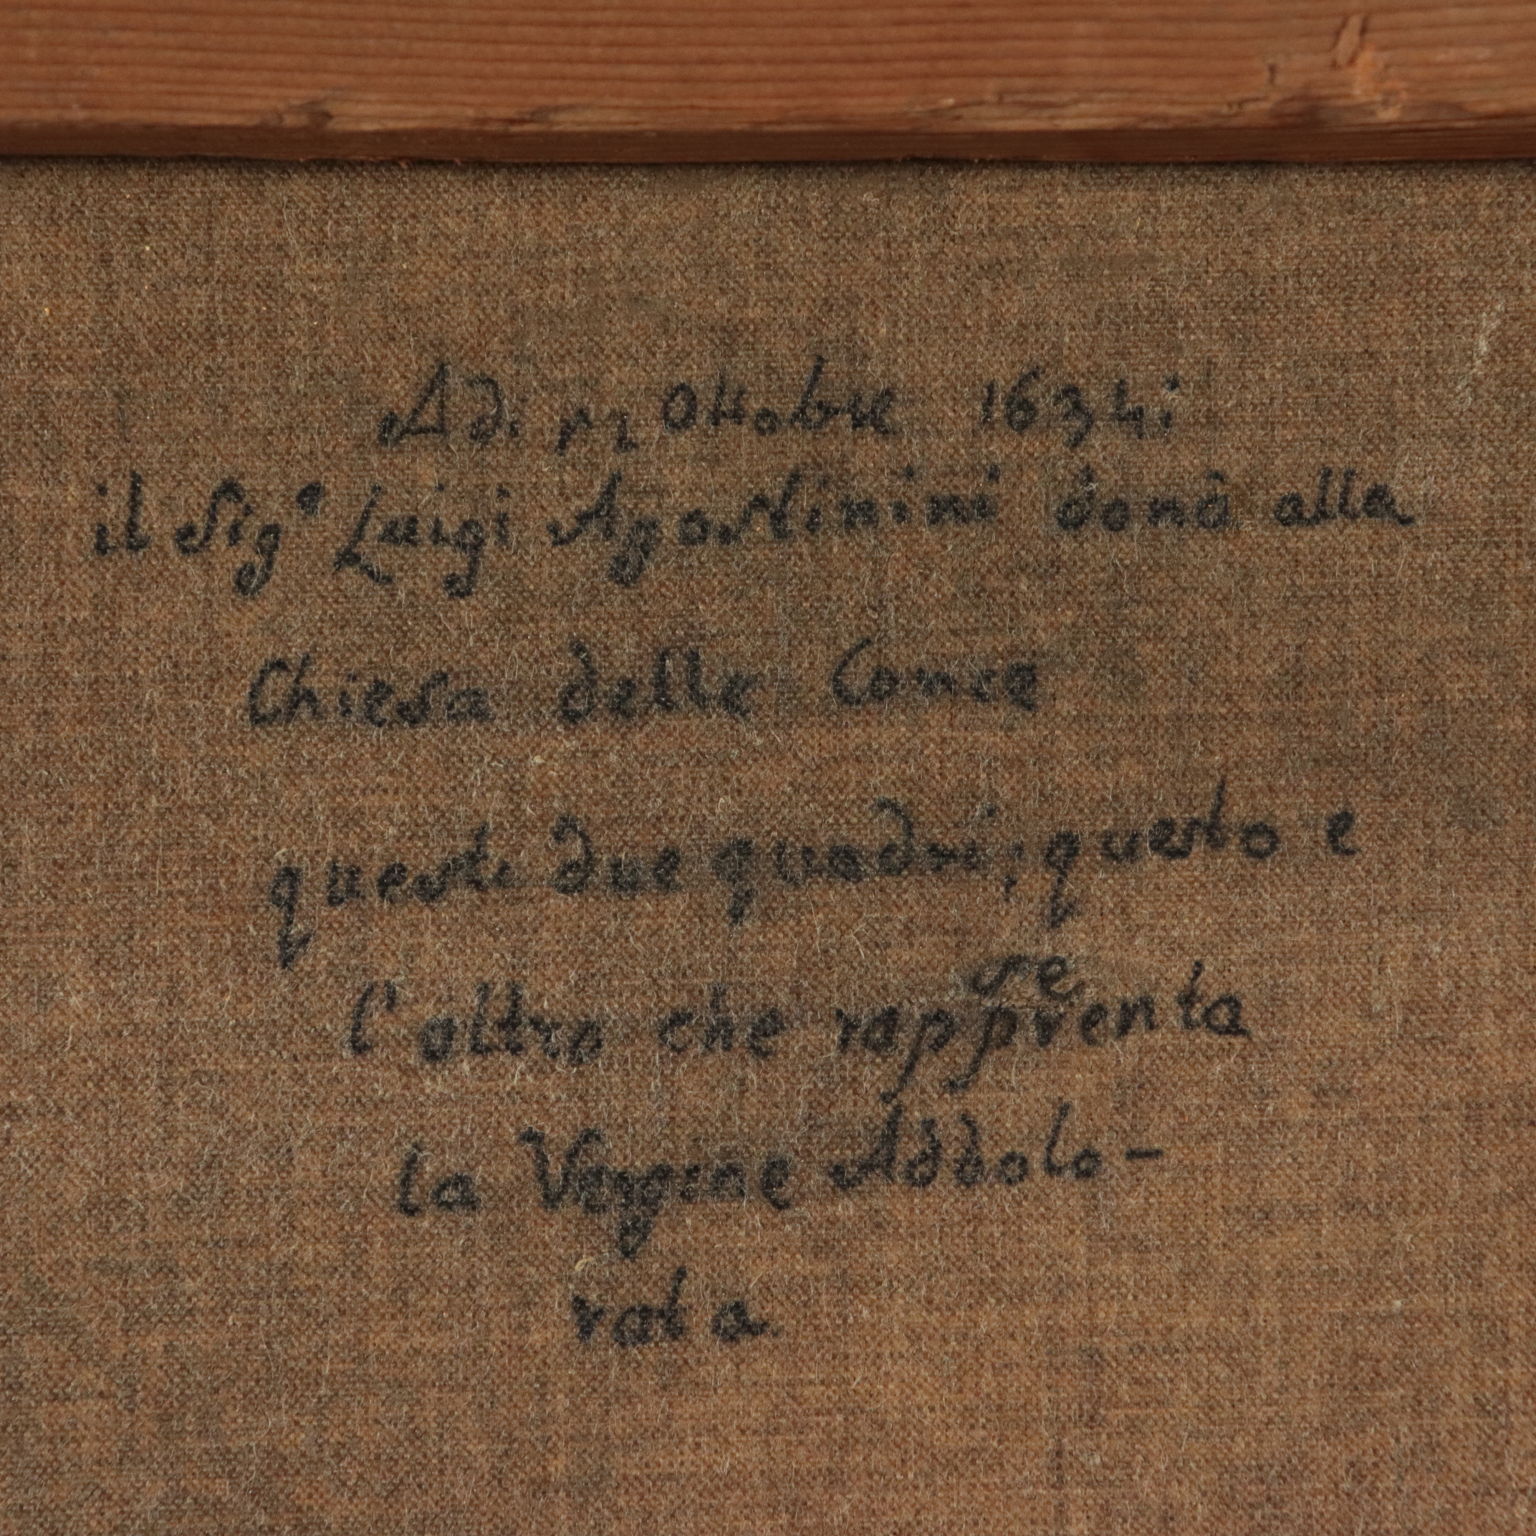 Adi Ottobre 1634:
il Sigr Luigi Agostinini donò alla
Chiesa delle
questi due quadri; questo e
l'altro che rapprse͏enta
la Vergine Addolo-
rata.